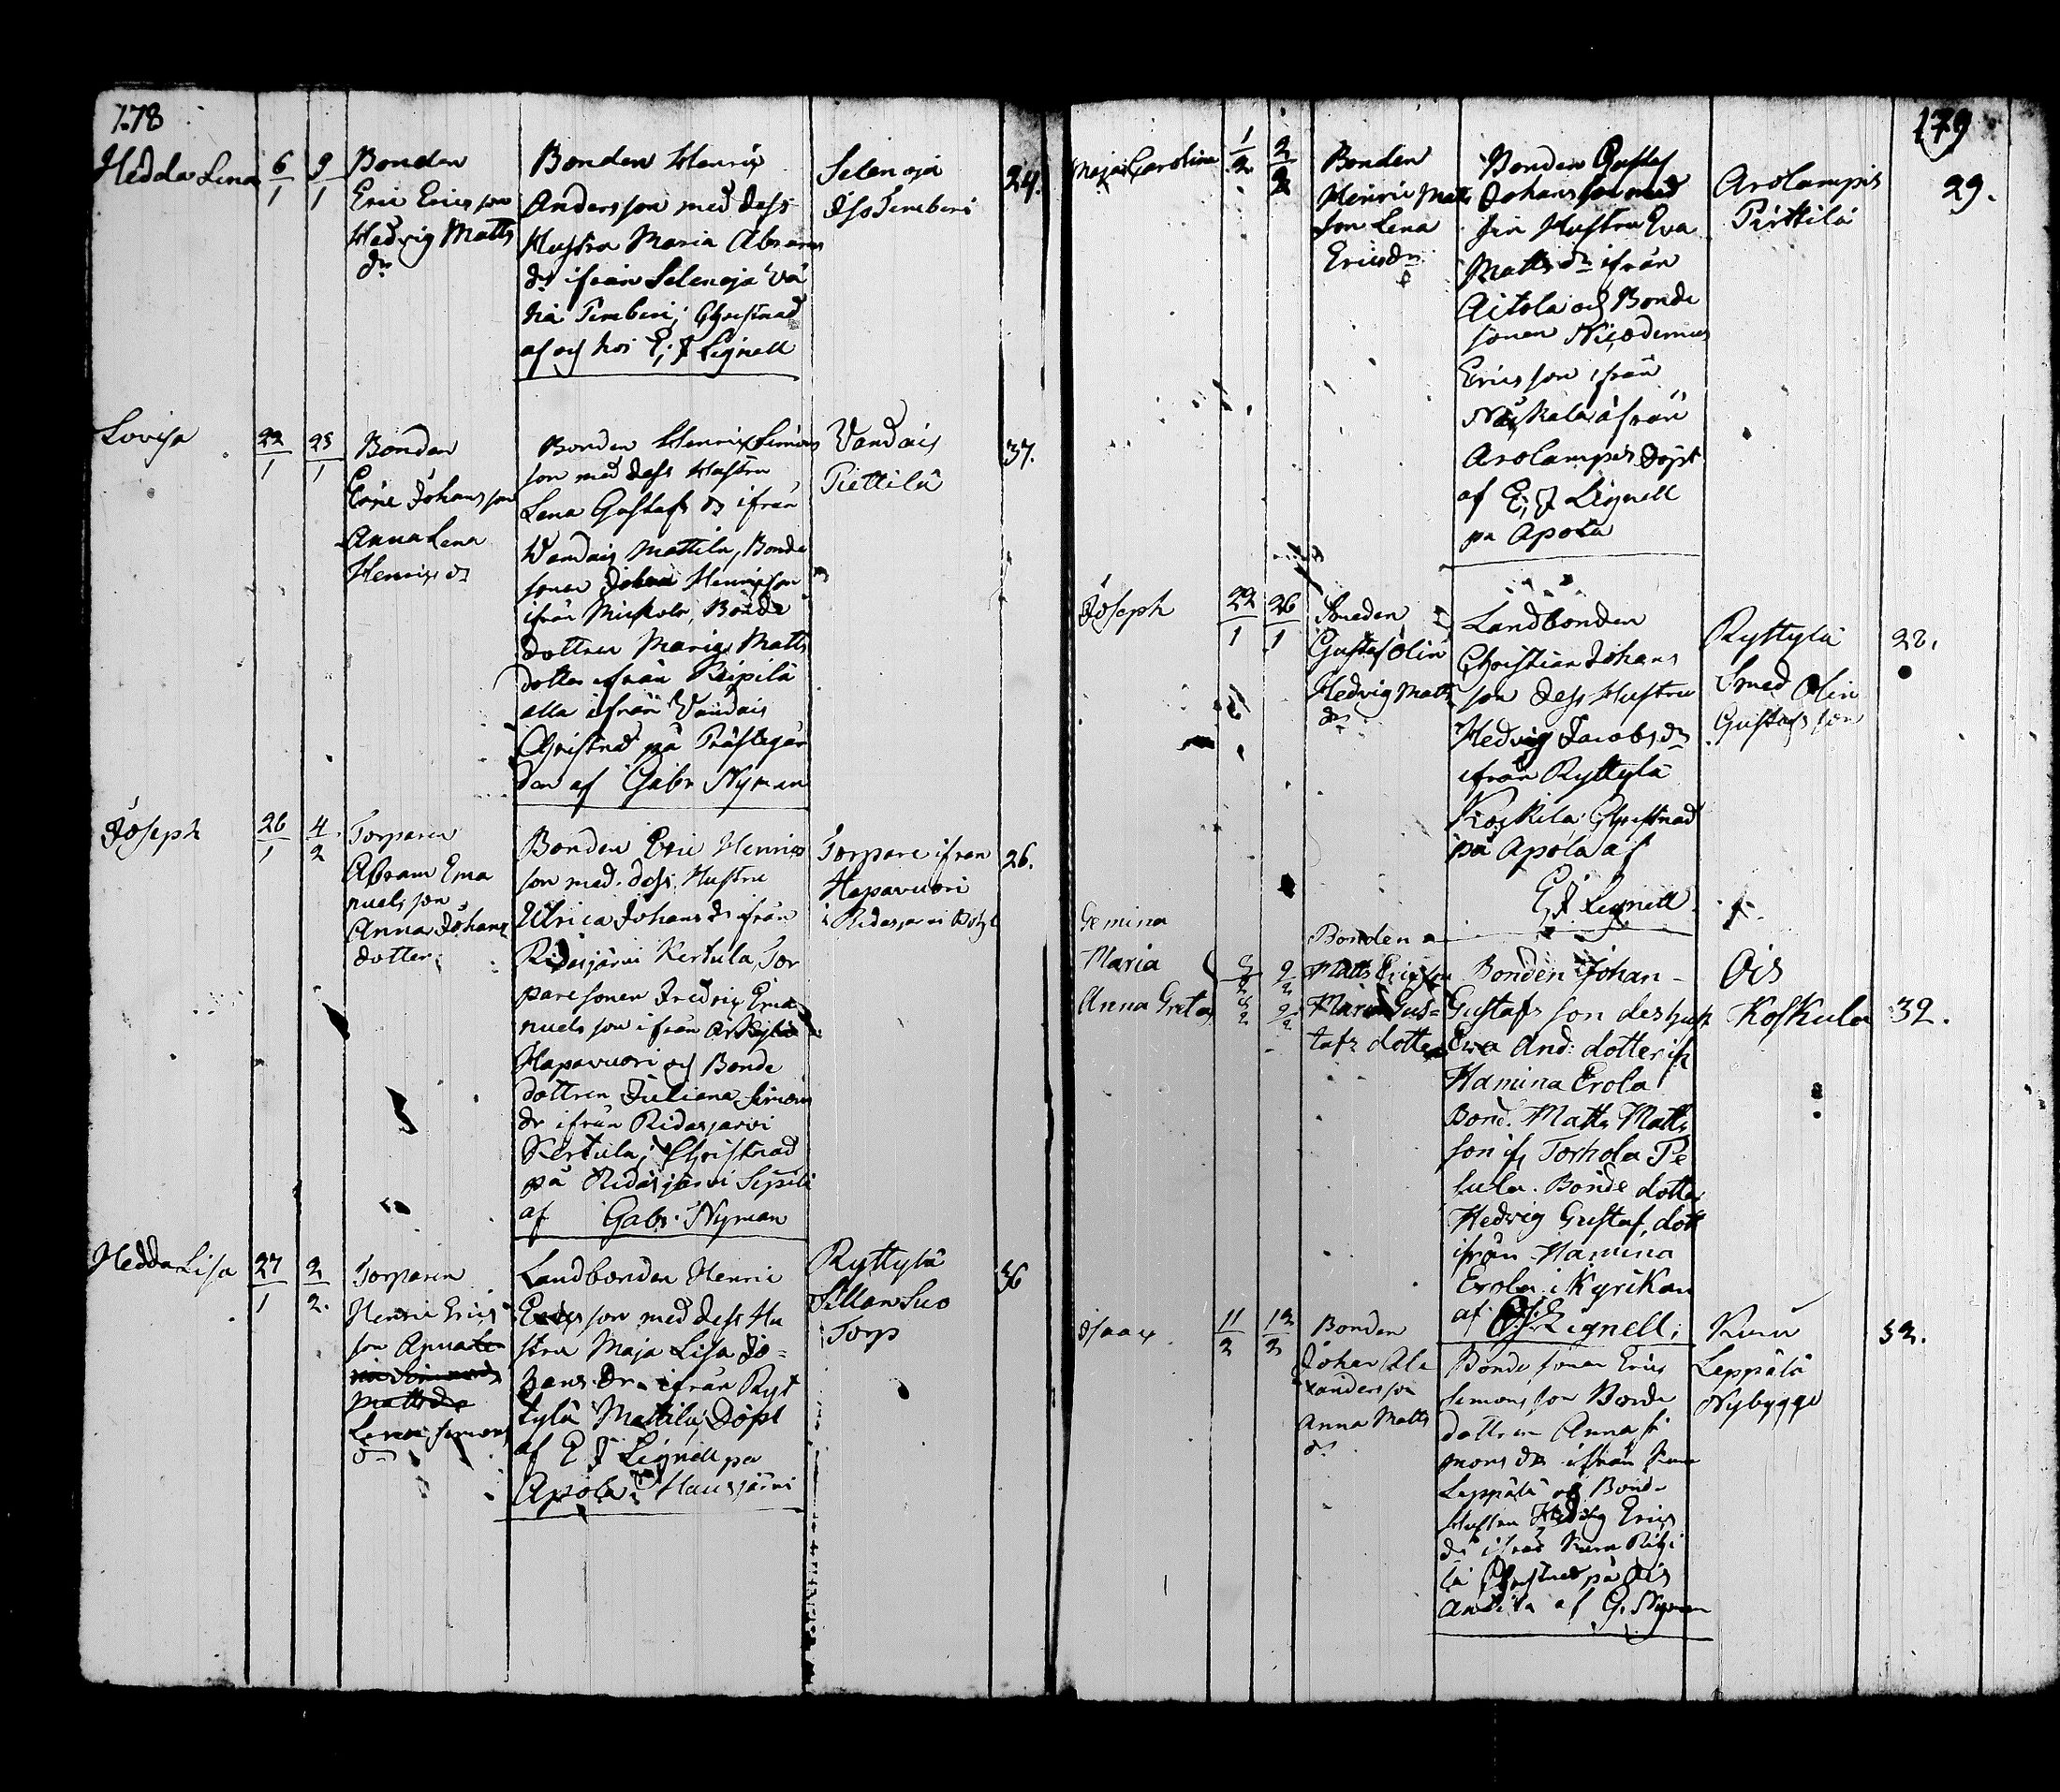 178
Hedda Lena
6/1
9/1
Bonden
Eric Ericsson
Hedvig Matts
dr
Bonden Henric
Andersson med dess
Hustru Maria Abrams
dr ifrån Selenoja Vä
hä Temberi; Christnad
af och hos E; J Lignell
Selenoja
Iso Temberi
24.
Lovisa
22/1
25/1
Bonden
Eric Johansson
Anna Lena
Henrics dr
Bonden Henric Simons
son med dess Hustru
Lena Gustafs dr ifrån
Vandais Mattila, Bonde
sonen Johan Henricsson
ifrån Mickola, Bonde
dottren Maria Matts
dotter ifrån Pispilä
alla ifrån Vandais
Christnad på Prästegår
den af Gabr Nyman
Vandais
Piettilä
37.
Joseph
26/1
4/2
Torparen
Abram Ema
nuels son
Anna Johans
dotter
Bonden Eric Henrics
son med dess Hustru
Ulrica Johans dr ifrån
Ridasjärvi Kertula, Tor
pare sonen Fredric Ema
nuels son ifrån
Hapavuori och Bonde
dottren Juliana Simons
dr ifrån Ridasjärvi
Kertula; Christnad
på Ridasjärvi Sipilä
af Gabr. Nyman
Torpare ifrån
Hapavuori
i Ridasjärvi
26.
Hedda Lisa
27/1
2/2.
Torparen
Henric Erics
son Anna
Matts dr
Lena Simons
dr
Landbonden Henric
Ericsson med dess Hu
stru Maja Lisa Jo=
hans Dr ifrån Ryt
tylä Mattila; Döpt
af E J Lignell på
Apola i Hausjärvi
Ryttylä
Sillan Suo
Torp
36
179
Maja Carolina
1/2
2/2
Bonden
Henric Matts
son Lena
Ericsdr
Bonden Gustaf
Johansson med
sin Hustru Eva
Matts dr ifrån
Aitola och Bonde
sonen Nicodemus
Ericsson ifrån
ifrån
Arolampis Döpt
af E; J Lignell
på Apola
Arolampis
Pirttilä
29.
Joseph
22/1
26/1
Smeden
Gustaf Olin
Hedvig Matts
dr
Landbonden
Christian Johans
son dess Hustru
Hedvig Jacobs dr
ifrån Ryttylä
Koskila; Christnad
på Apola af
E J Lignell
Ryttylä
Smed Olin
Gustafs son
28.
Gemina
Maria
Anna Greta
9/2
9/2
Bonden
Matts Ericsson
Maria Gus=
tafs dotter
Bonden Johan
Gustafs son des hust
Eva And: dotter ifr
Hamina Erola
Bond. Matts Matts
son ifr Torhola Pe
lula. Bonde dotter
Hedvig Gustaf, dott
ifrån Hamina
Erola. i Kyrikan
af E J Lignell;
Ois
Koskula
32.
Isaac
11/2
12/2
Bonden
Johan Ale
xandersson
Anna Matts
dr
Bonde sonen Eric
Simonsson Bonde
dottren Anna Si
mons dr ifrån Kuru
Leppälä och Bonde
Hustru Hedvig Erics
dr ifrån Kuru
lä Christnad på Ois
Anttila af G. Nyman
Kuru
Leppälä
Nybygge
32.